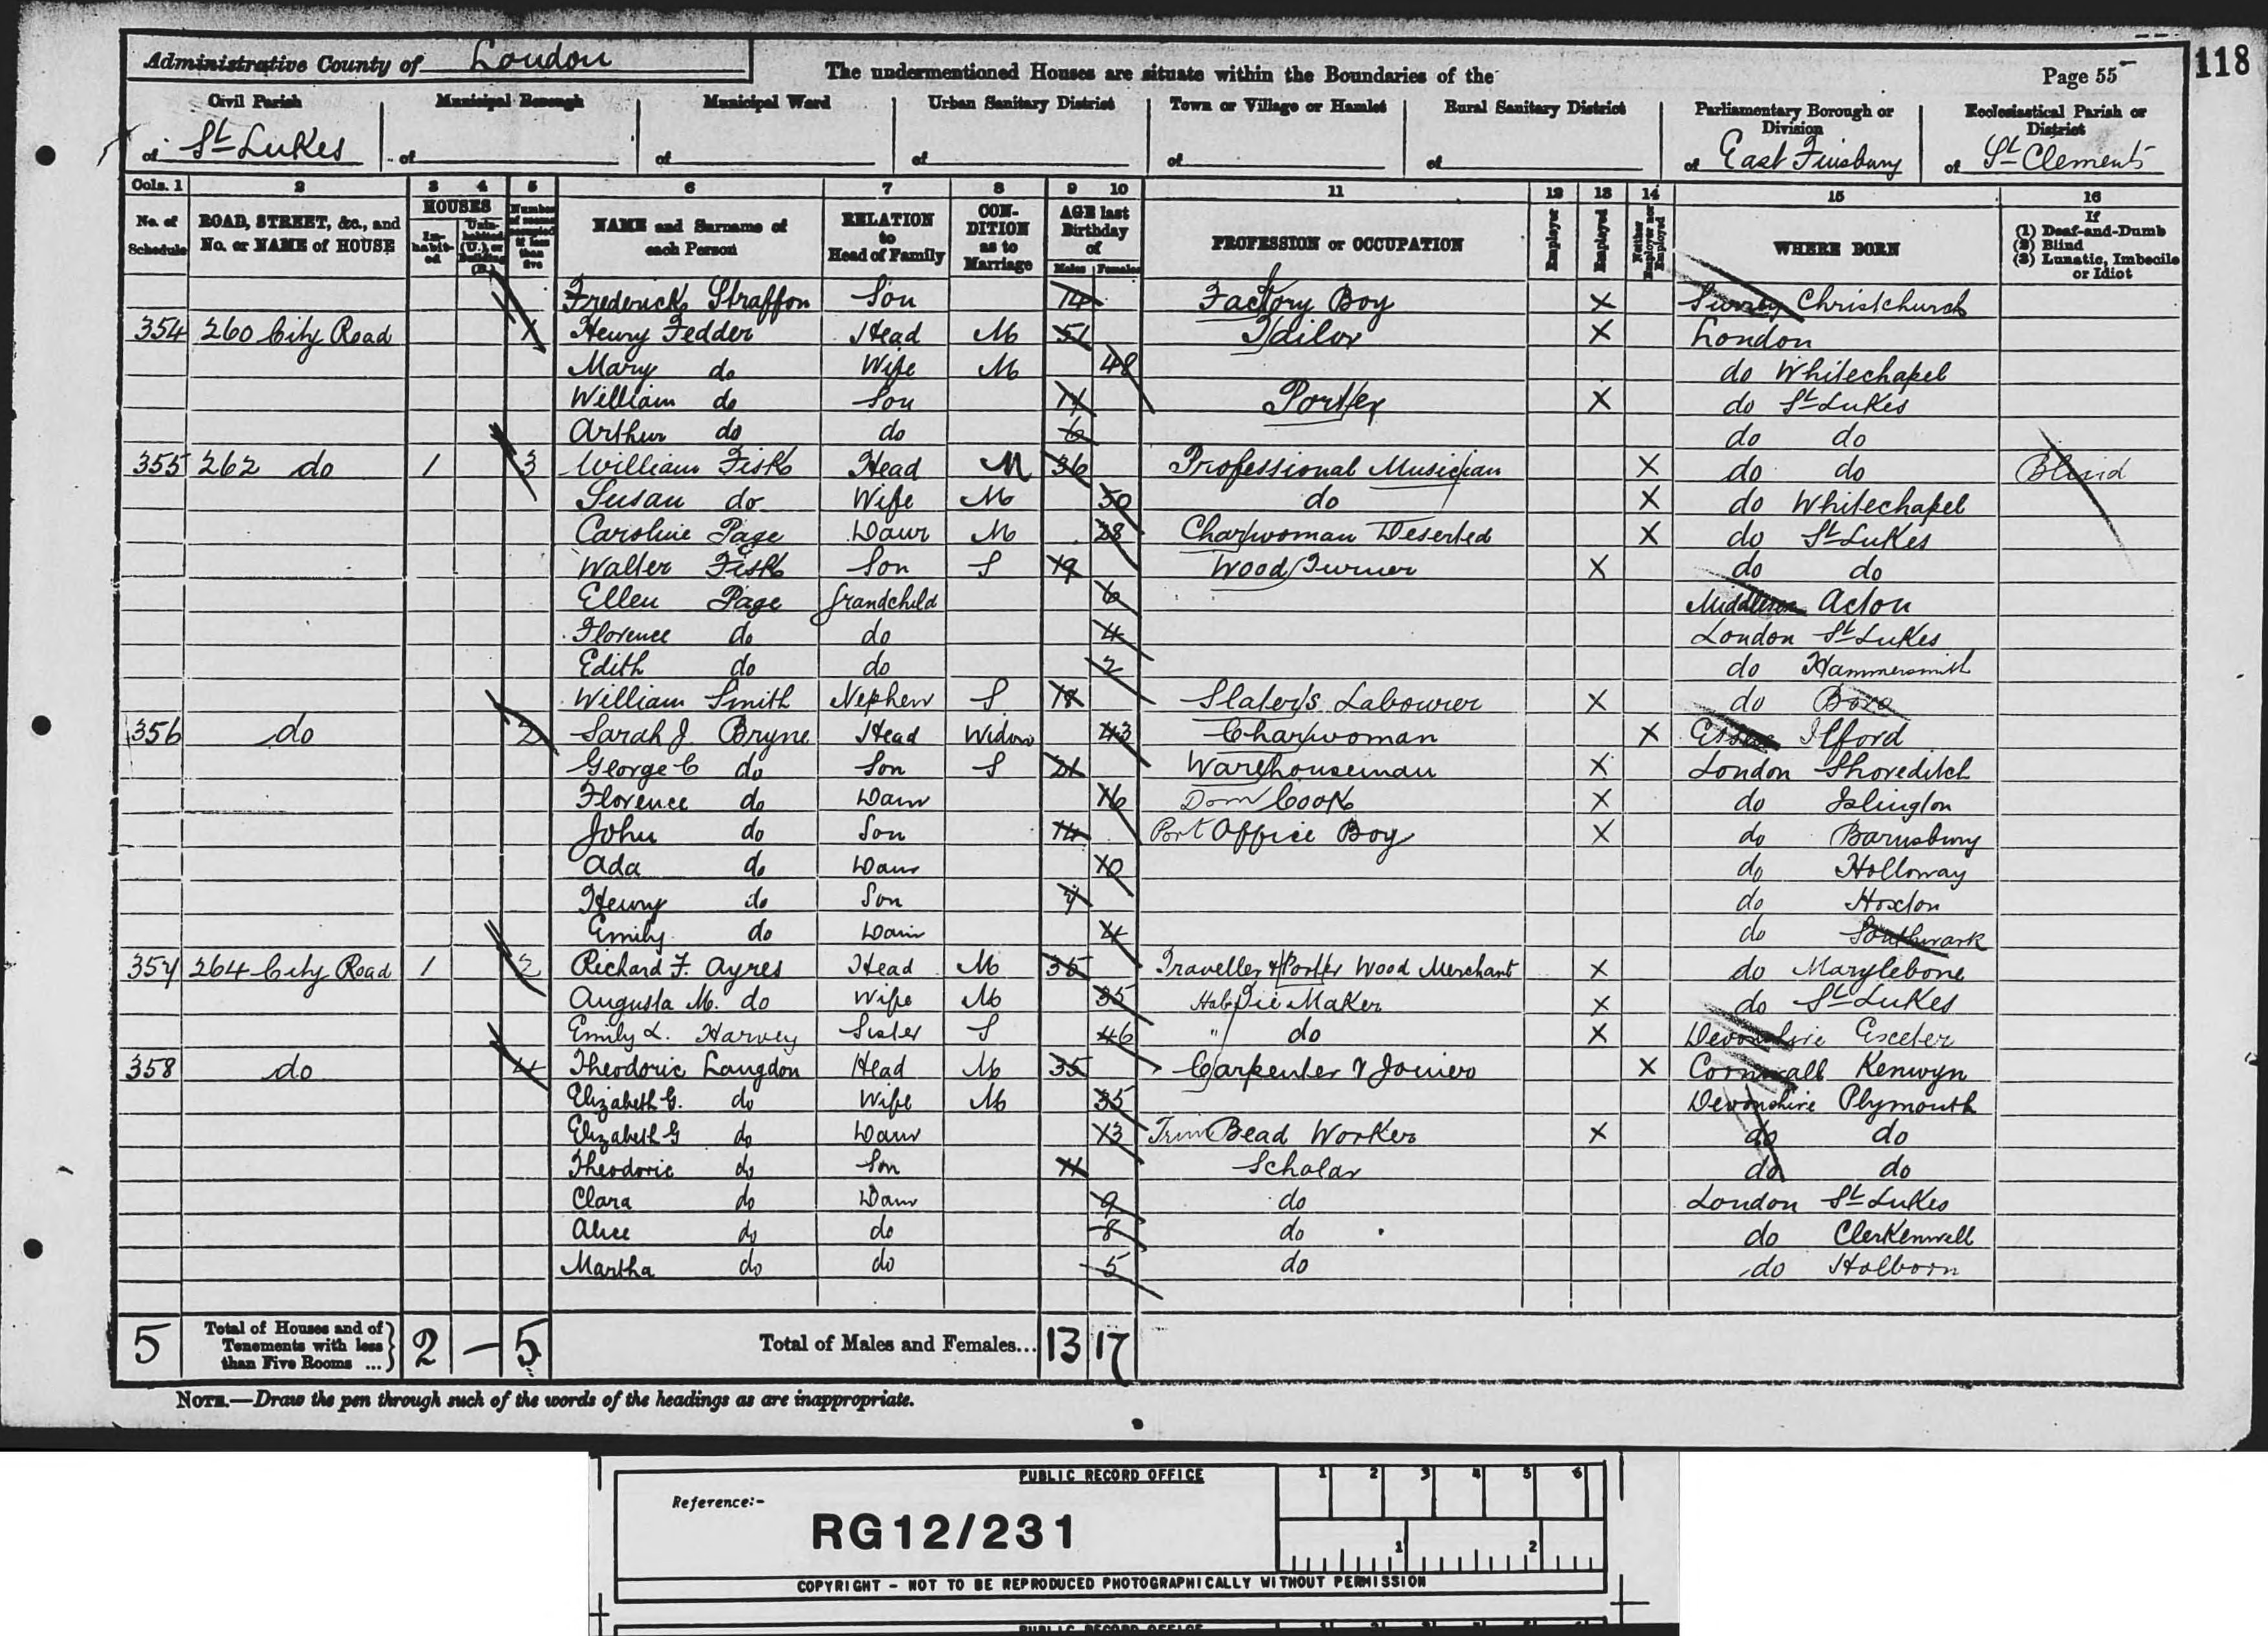 118
Administrative County of London
The undermentioned Houses are situate within the Boundaries of the
Page 55
Civil Parish Municipal Borough Municipal Ward Urban Sanitary District Town or Village or Hamlet Rural Sanitary District Parliamentary Borough or Division Ecclesiastical Parish or District
of St Lukes of of of of of of East Finsbury of St Clements
Cols. 1 2 3 4 5 6 7 8 9 10 11 12 13 14 15 16
No. of Schedule ROAD, STREET, &c., and No. or NAME of HOUSE HOUSES Inhabited Uninhabited (U.), or Building (B.) Number of rooms occupied if less than five NAME and Surname of each Person RELATION to Head of Family CONDITION as to Marriage AGE last Birthday of Males Females PROFESSION or OCCUPATION Employer Employed Neither Employer nor Employed WHERE BORN If (1) Deaf-and-Dumb (2) Blind (3) Lunatic, Imbecile or Idiot
Frederick Straffon Son 14 Factory Boy X Surrey Christchurch
354 260 City Road 1 Henry Fedder Head M 51 Tailor X London
Mary do Wife M 48 do Whitechapel
William do Son Porter X do St Lukes
Arthur do do 6 do do
355 262 do 1 3 William Fisk Head M 36 Professional Musician X do do Blind
Susan do Wife M 50 do X do Whitechapel
Caroline Page Daur M 28 Charwoman Deserted X do St Lukes
Walter Fisk Son S 19 Wood Turner X do do
Ellen Page Grandchild 6 Middlesex Acton
Florence do do 4 London St Lukes
Edith do do 2 do Hammersmith
William Smith Nephew S 18 Slater's Labourer X do Boro
356 do 2 Sarah J. Bryne Head Widow 43 Charwoman X Essex Ilford
George C do Son S 21 Warehouseman X London Shoreditch
Florence do Daur 16 Dom Cook X do Islington
John do Son 14 Office Boy X do Barnsbury
Ada do Daur 10 do Holloway
Henry do Son 7 do Hoxton
Emily do Daur 4 do Southwark
357 264 City Road 1 2 Richard F. Ayres Head M 35 Traveller & Porter Wood Merchant X do Marylebone
Augusta M. do Wife M 35 Tie Maker X do St Lukes
Emily L. Harvey Sister S 46 " do X Devonshire Exeter
358 do 4 Theodoric Langdon Head M 35 Carpenter & Joiner X Cornwall Kenwyn
Elizabeth G. do Wife M 35 Devonshire Plymouth
Elizabeth G do Daur 13 Trim Bead Worker X do do
Theodoric do Son 11 Scholar do do
Clara do Daur 9 do London St Lukes
Alice do do 8 do do Clerkenwell
Martha do do 5 do do Holborn
5 Total of Houses and of Tenements with less than Five Rooms ... 2 — 5 Total of Males and Females... 13 17
NOTE.—Draw the pen through such of the words of the headings as are inappropriate.
PUBLIC RECORD OFFICE 1 2 3 4 5 6
Reference:-
RG12/231
1 2
COPYRIGHT - NOT TO BE REPRODUCED PHOTOGRAPHICALLY WITHOUT PERMISSION
PUBLIC RECORD OFFICE